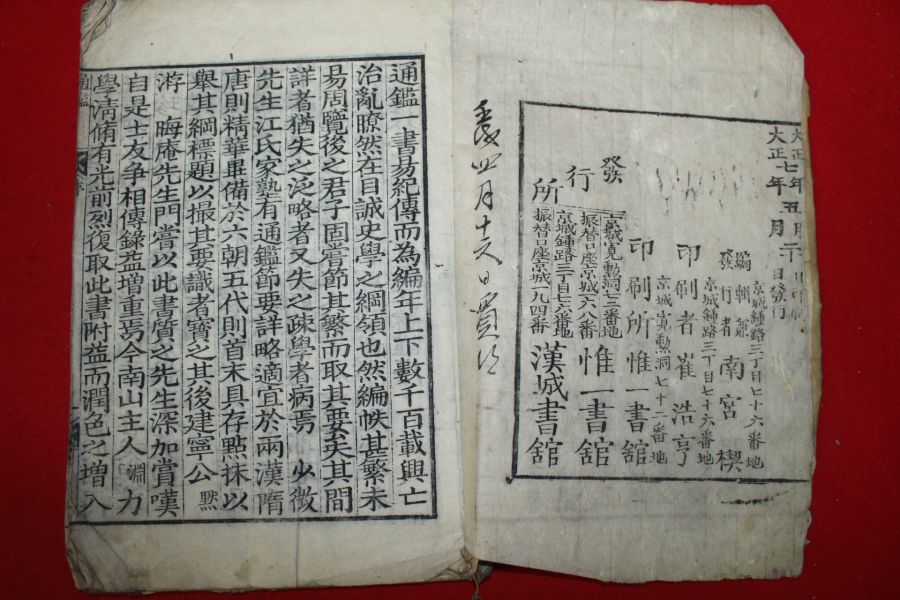 大正七年五月
大正七年五月二十日發行
京城鍾路三丁目七十六番地
編輯兼
發行者 南宮楔
京城鍾路三丁目七十六番地
印刷者 崔浩亨
京城寬勳洞七十二番地
印刷所 惟一書館
發行所
京城寬勳洞七二番地
振替口座京城六八番 惟一書館
京城鍾路三丁目七六番地
振替口座京城九四番 漢城書館
四月十六日買
通鑑一書易紀傳而為編年上下數千百載興亡
治亂瞭然在目誠史學之綱領也然編帙甚繁未
易周覽後之君子固嘗節其繁而取其要矣其間
詳者猶失之泛略者又失之疎學者病焉 少微
先生江氏家塾有通鑑節要詳略適宜於兩漢隋
唐則精華畢備於六朝五代則首末具存點抹以
舉其綱標題以撮其要識者寶之其後建寧公默
游 晦庵先生門嘗以此書質之先生深加賞嘆
自是士友爭相傳錄益增重焉今南山主人淵力
學清脩有光前烈復取此書附益而潤色之增入
通鑑 序